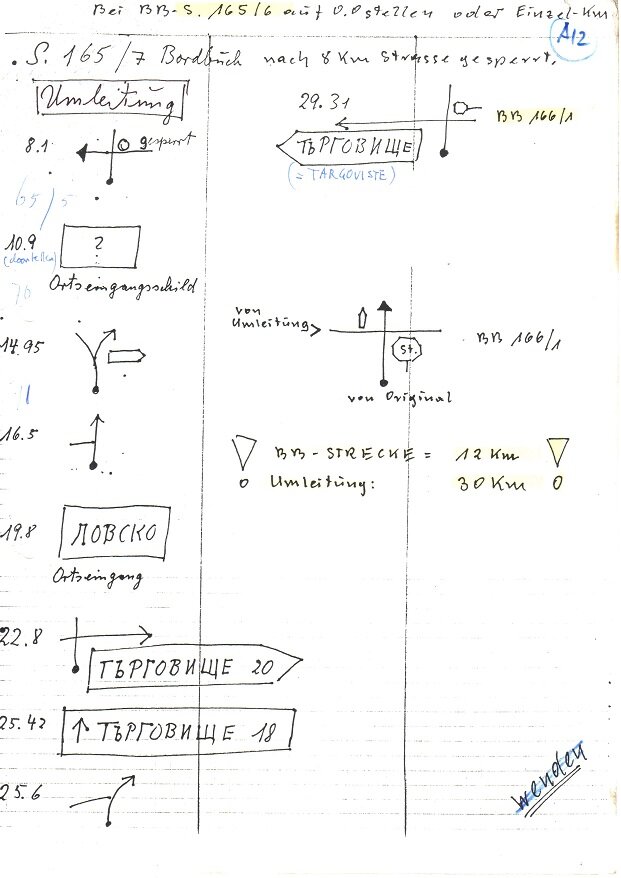 Bei BB-S. 165/6 auf 0.0stellen oder Einzel-Km
A12
. S. 165/7 Bordbuch nach 8 Km Strasse gesperrt.
Umleitung
8.1
gesperrt
65/5
10.9
?
Ortseingangsschild
70
14.95
1
16.5
19.8
ЛОВСКО
Ortseingang
22.8
ТЪРГОВИЩЕ 20
25.42
ТЪРГОВИЩЕ 18
25.6
29.31
BB 166/1
ТЪРГОВИЩЕ
(= TARGOVISTE)
von
Umleitung
BB 166/1
St.
von Original
BB-STRECKE = 12 Km
Umleitung: 30 Km
wenden